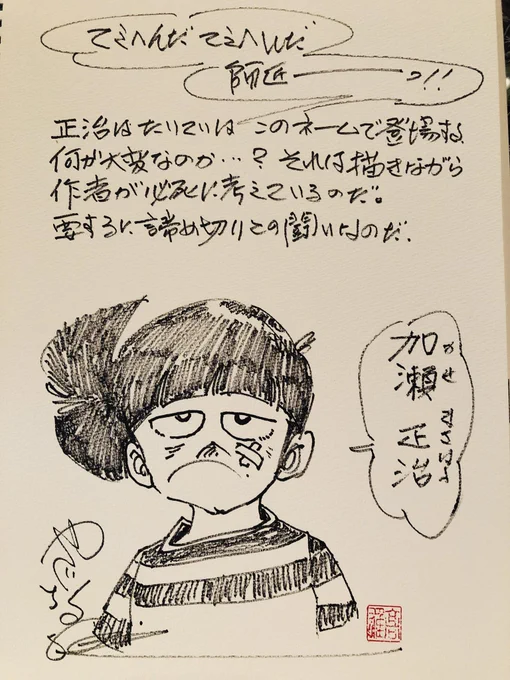 てえへんだ てえへんだ
師匠―――っ!!
正治はたいていは このネームで登場する
何が大変なのか…? それは描きながら
作者が必死に考えているのだ。
要するに諦め切りとの闘いなのだ.
加瀬 正治
かせ